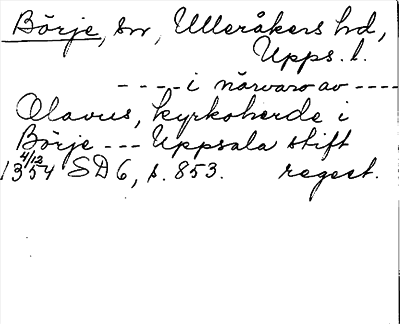 Börje, sn, Ulleråkers hd,
Upps. l.
----i närvaro av ----
Olavus, kyrkoherde i
Börje --- Uppsala stift
4/12
1354 SD 6, s. 853. regest.